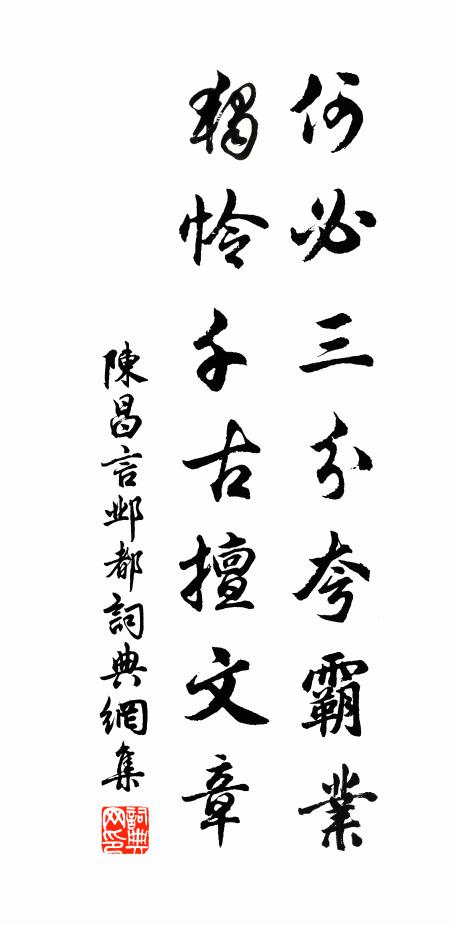 何必三分夸霸業
獨憐千古擅文章
陳昌言邺都詞典網集
詞典网印